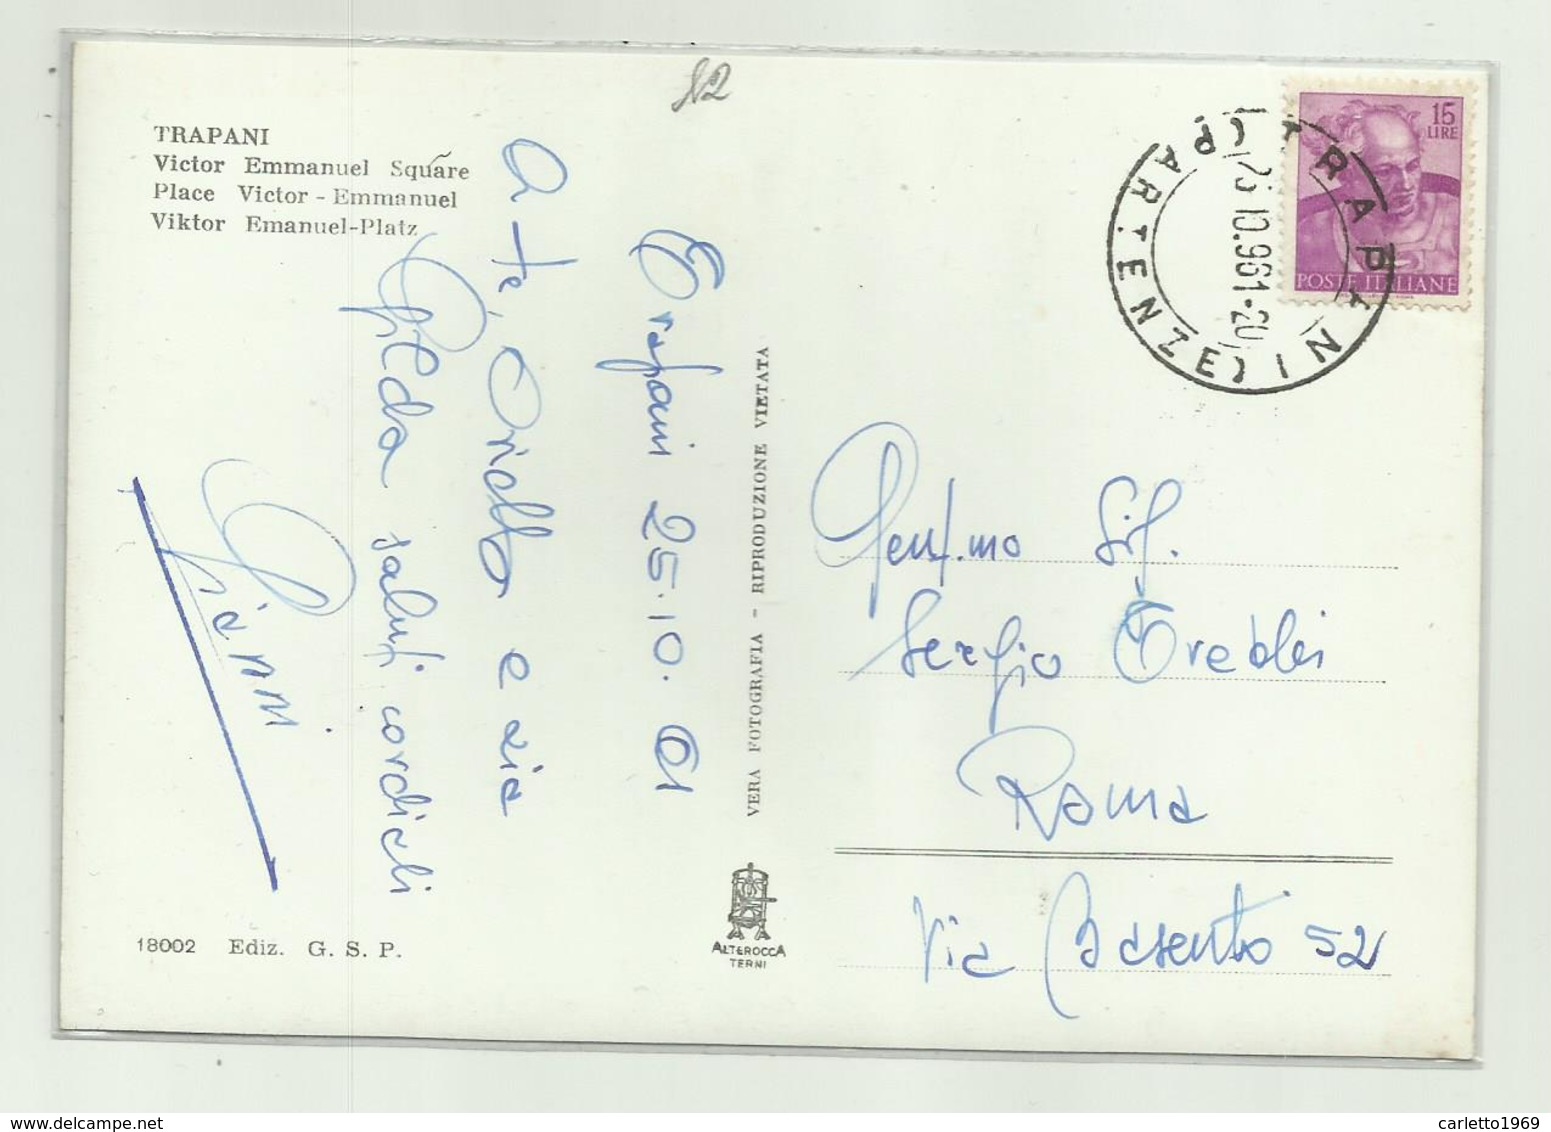 N2
TRAPANI
Victor Emmanuel Square
Place Victor - Emmanuel
Viktor Emanuel-Platz
Trapani 25.10.61
a te, Oriella e zia
Gilda saluti cordiali
Gianni
18002 Ediz. G. S. P.
VERA FOTOGRAFIA - RIPRODUZIONE VIETATA
ALTEROCCA
TERNI
15
LIRE
POSTE ITALIANE
TRAPANI
(PARTENZE)
25.10.961-20
Gent.mo Sig.
Sergio
Roma
Via Basento 52
carletto1969
www.delcampe.net